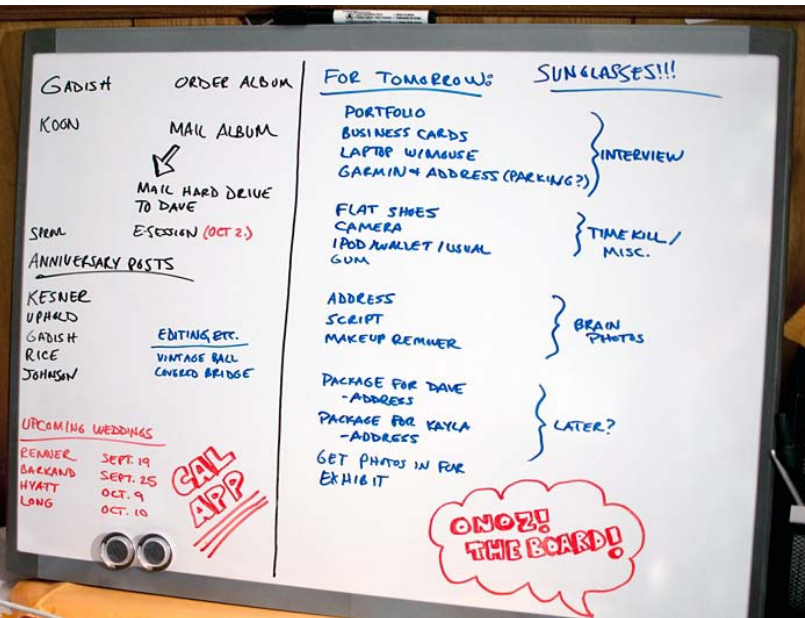 GADISH ORDER ALBUM
KOON MAIL ALBUM
MAIL HARD DRIVE
TO DAVE
E-SESSION (OCT 2.)
ANNIVERSARY POSTS
KESNER
UPHOLD
GADISH
RICE
JOHNSON
EDITING, ETC.
VINTAGE BALL
COVERED BRIDGE
UPCOMING WEDDINGS
RENNER SEPT. 19
BARKAND SEPT. 25
HYATT OCT. 9
LONG OCT. 10
CAL
APP
FOR TOMORROW:
SUNGLASSES!!!
PORTFOLIO
BUSINESS CARDS
LAPTOP W/MOUSE
GARMIN & ADDRESS (PARKING?)
INTERVIEW
FLAT SHOES
CAMERA
IPOD/WALLET/USUAL
GUM
TIME KILL/
MISC.
ADDRESS
SCRIPT
MAKEUP REMOVER
BRAIN
PHOTOS
PACKAGE FOR DAVE
-ADDRESS
PACKAGE FOR KAYLA
-ADDRESS
GET PHOTOS IN FOR
EXHIBIT
LATER?
ONOZ!
THE BOARD!